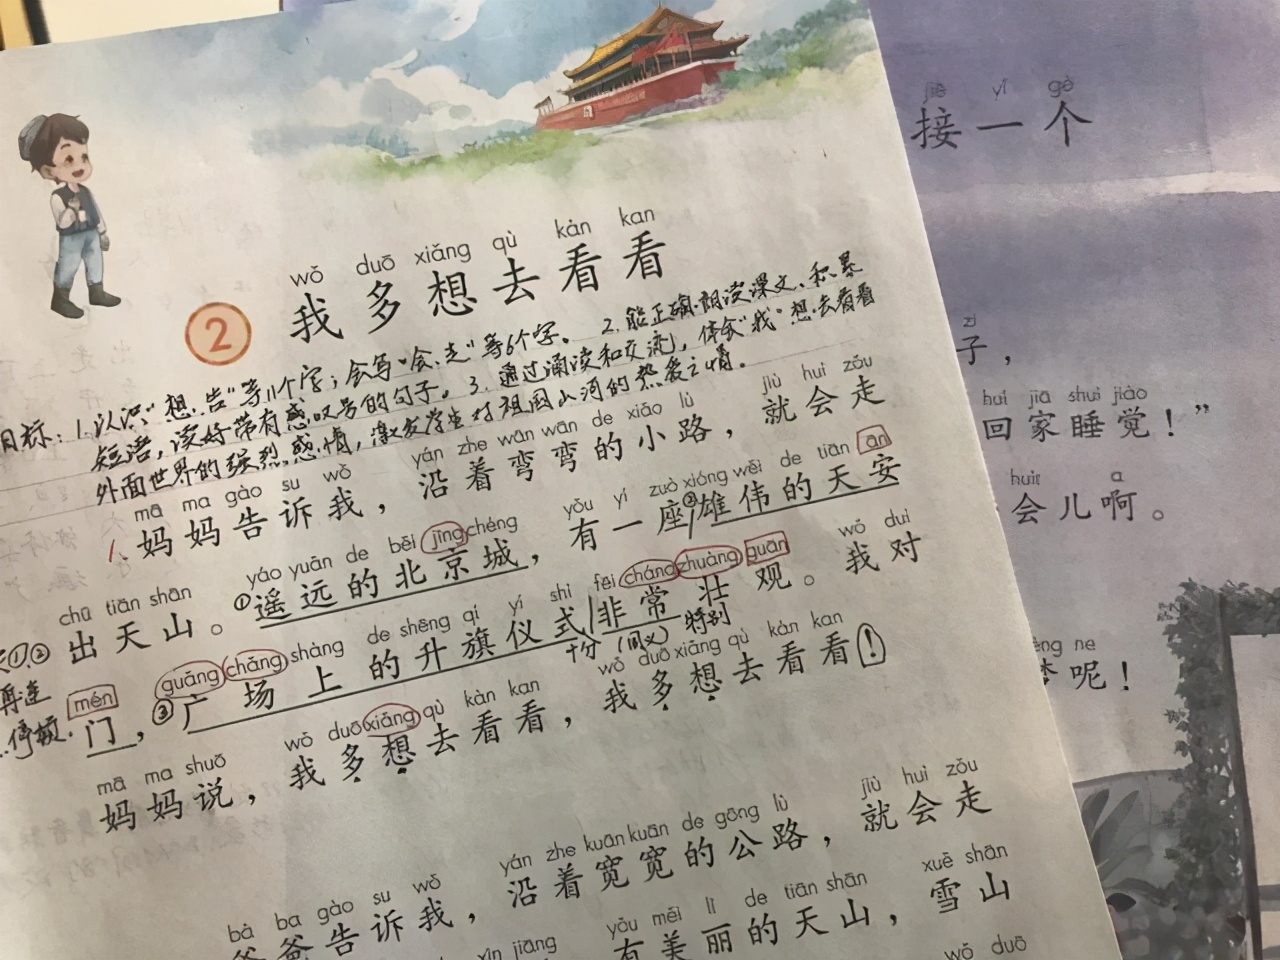 wǒ duō xiǎng qù kàn kan
2 我多想去看看
目标：1.认识“想、告”等11个字；会写“会、走”等6个字。2.能正确朗读课文、积累
短语，读好带有感叹号的句子。3.通过诵读和交流，体会“我”想去看看
外面世界的强烈感情，激发学生对祖国山河的热爱之情。
mā ma gào su wǒ yán zhe wān wān de xiǎo lù jiù huì zǒu
1.妈妈告诉我，沿着弯弯的小路，就会走
chū tiān shān yáo yuǎn de běi jīng chéng yǒu yí zuò xióng wěi de tiān ān
①② 出天山。①遥远的北京城，有一座②雄伟的天安
mén guǎng chǎng shàng de shēng qí yí shì fēi cháng zhuàng guān wǒ duì
门，③广场上的升旗仪式非常壮观。我对
再连
停顿
十分 (同义) 特别
mā ma shuō wǒ duō xiǎng qù kàn kan wǒ duō xiǎng qù kàn kan
妈妈说，我多想去看看，我多想去看看！
bà ba gào su wǒ yán zhe kuān kuān de gōng lù jiù huì zǒu
爸爸告诉我，沿着宽宽的公路，就会走
xīn jiāng yǒu měi lì de tiān shān xuě shān
有美丽的天山，雪山
wǒ duō
jiē yí gè
接一个
zi
子，
huí jiā shuì jiào
回家睡觉！”
huìr a
会儿啊。
ne
呢！